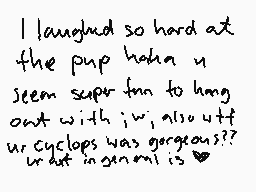 I laughed so hard at
the pup haha u
seem super fun to hang
out with ;w; also wtf
ur cyclops was gorgeous??
ur art in general is ♥